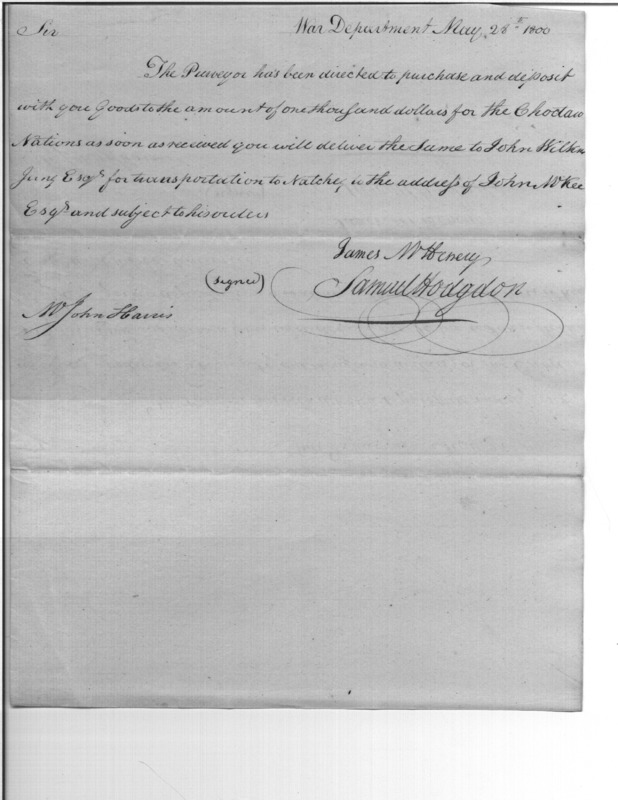 Sir War Department May 28th 1800
The Purveyor has been directed to purchase and deposit
with you Goods to the amount of one thousand dollars for the Choctaw
Nations as soon as received you will deliver the Same to John Wilkin
Junr Esqr for transportation to Natchez to the address of John McKee
Esqr and subject to his orders
James McHenry
(signed) Samuel Hodgdon
Mr John Harris